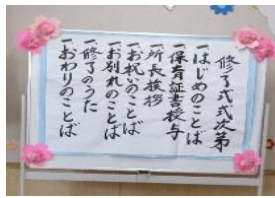 修了式式次第
一はじめのことば
一保育証書授与
一所長挨拶
一お祝いのことば
一お別れのことば
一修了のうた
一おわりのことば